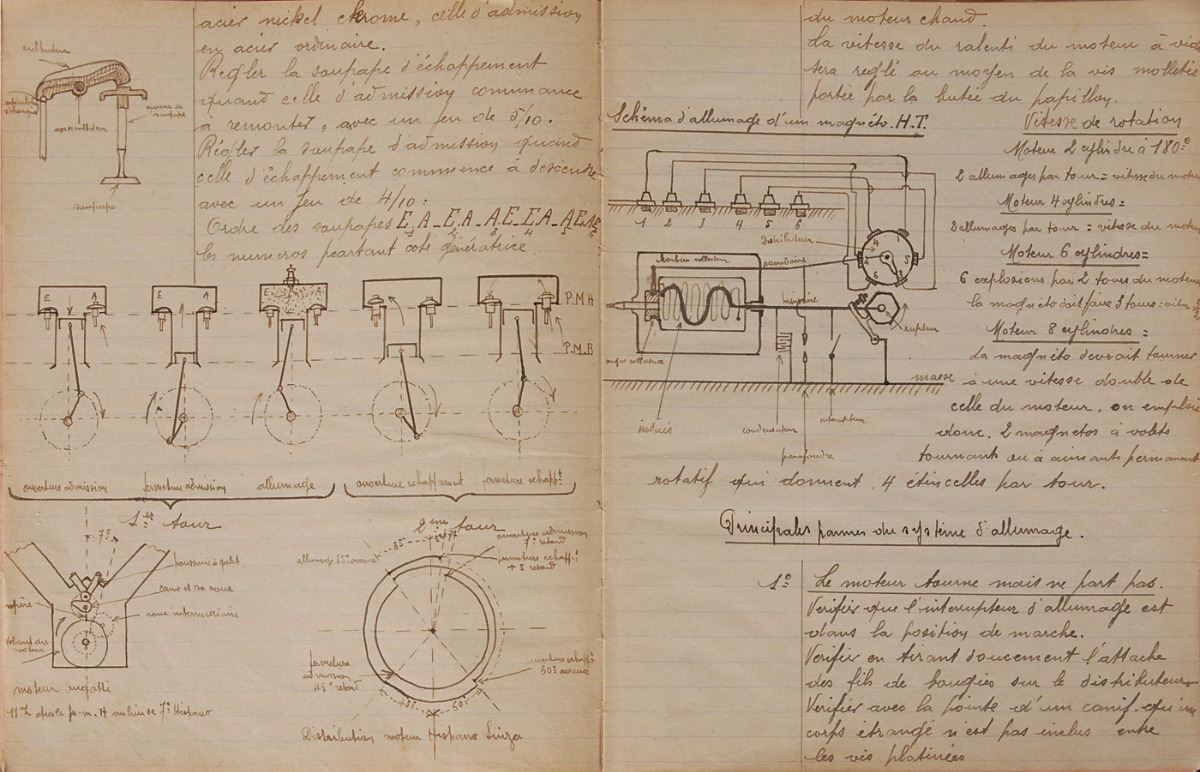 acier nickel chrome, celle d'admission
en acier ordinaire.
Régler la soupape d'échappement
quand celle d'admission commence
à remonter, avec un jeu de 5/10.
Régler la soupape d'admission quand
celle d'échappement commence à descendre
avec un jeu de 4/10:
Ordre des soupapes E A _ E A _ A E _ E A _ A E _ A E
1 2 3 4 5 6
les numéros partant coté génératrice
culbuteur
axe culbuteur
soupape
E A
E A
E A
P.M.H
P.M.B
ouverture admission
fermeture admission
allumage
ouverture echappement
fermeture echappt
1er tour
2ème tour
7°
poussoir à galet
came et sa roue
roue intermediaire
repère
volant du moteur
moteur
après le p.m.H au lieu de 7° Hispano
35°
ouverture admission
7° retard
fermeture echappt
+5 retard
allumage 35° avance
fermeture
admission
45° retard
ouverture echappt
60° avance
45°
60°
Distribution moteur Hispano Suiza
du moteur chaud.
La vitesse du ralenti du moteur à vid
sera reglé au moyen de la vis molletée
portée par la butée du papillon.
Schéma d'allumage d'un magnéto. H.T.
1 2 3 4 5 6
distributeur
secondaire
charbon collecteur
primaire
rupteur
masse
induis
condensateur
parafoudre
Vitesse de rotation
Moteur 2 cylindre à 180°
2 allumages par tour = vitesse du moteu
Moteur 4 cylindres =
2 allumages par tour = vitesse du moteur
Moteur 6 cylindres =
6 explosions par 2 tours du moteu
la magneto doit faire 3 tours =
Moteur 8 cylindres =
La magnéto devrait tourner
à une vitesse double de
celle du moteur. on emploi
donc. 2 magnetos à volets
tournant ou à aimants permanent
rotatif qui donnent 4 étincelles par tour.
Principales pannes du système d'allumage.
1° Le moteur tourne mais ne part pas.
Verifier que l'interrupteur d'allumage est
dans la position de marche.
Verifier en tirant doucement l'attache
des fils de bougies sur le distributeur
Verifier avec la pointe d'un canif. qu'un
corps étrangé n'est pas inclus entre
les vis platinées